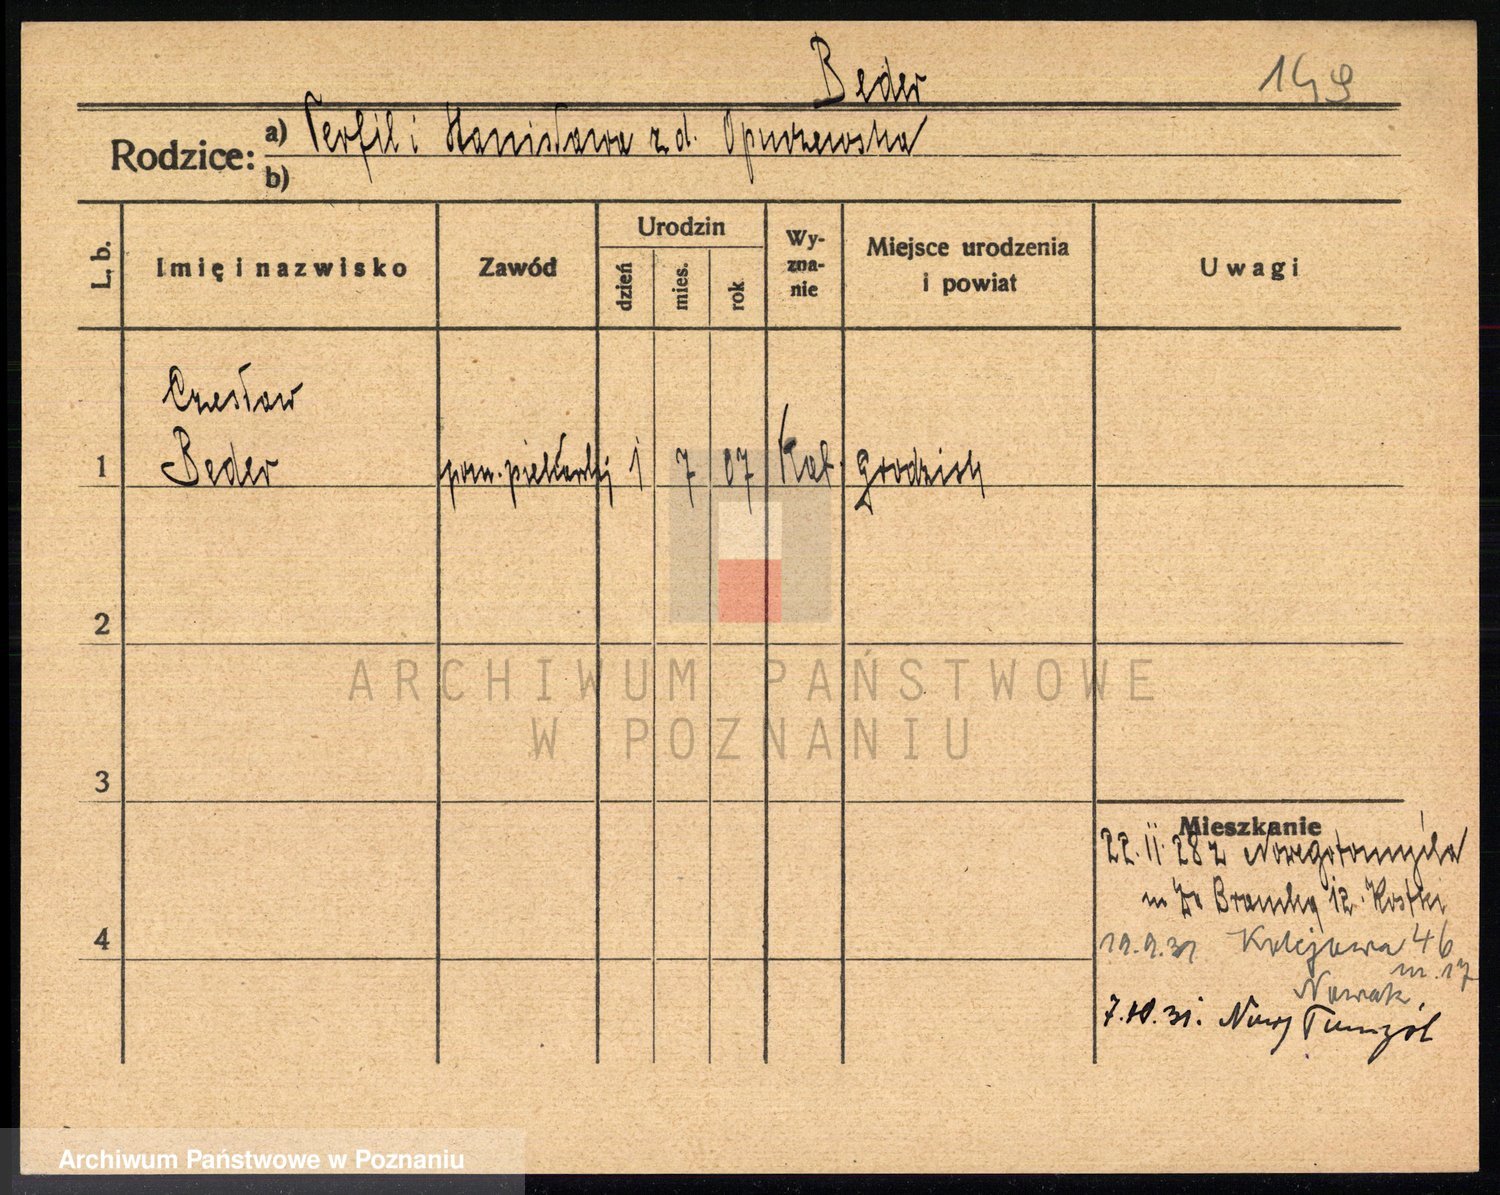 Beder
149
Rodzice:
a) Terfil i Stanisława z d. Opuszewska
b)
L. b.
Imię i nazwisko
Zawód
Urodzin
dzień
mies.
rok
Wy-
zna-
nie
Miejsce urodzenia
i powiat
Uwagi
Czesław
1 Beder pom. piekarski 1 7 07 Kat. Grodzisk
2
3
4
ARCHIWUM PAŃSTWOWE
W POZNANIU
Mieszkanie
22. II. 28 z Nowegotomyśla
12. Kostki
19.9.31 Kolejowa 46
m. 17
Nowak
7.10.31. Nowy Tomyśl
Archiwum Państwowe w Poznaniu